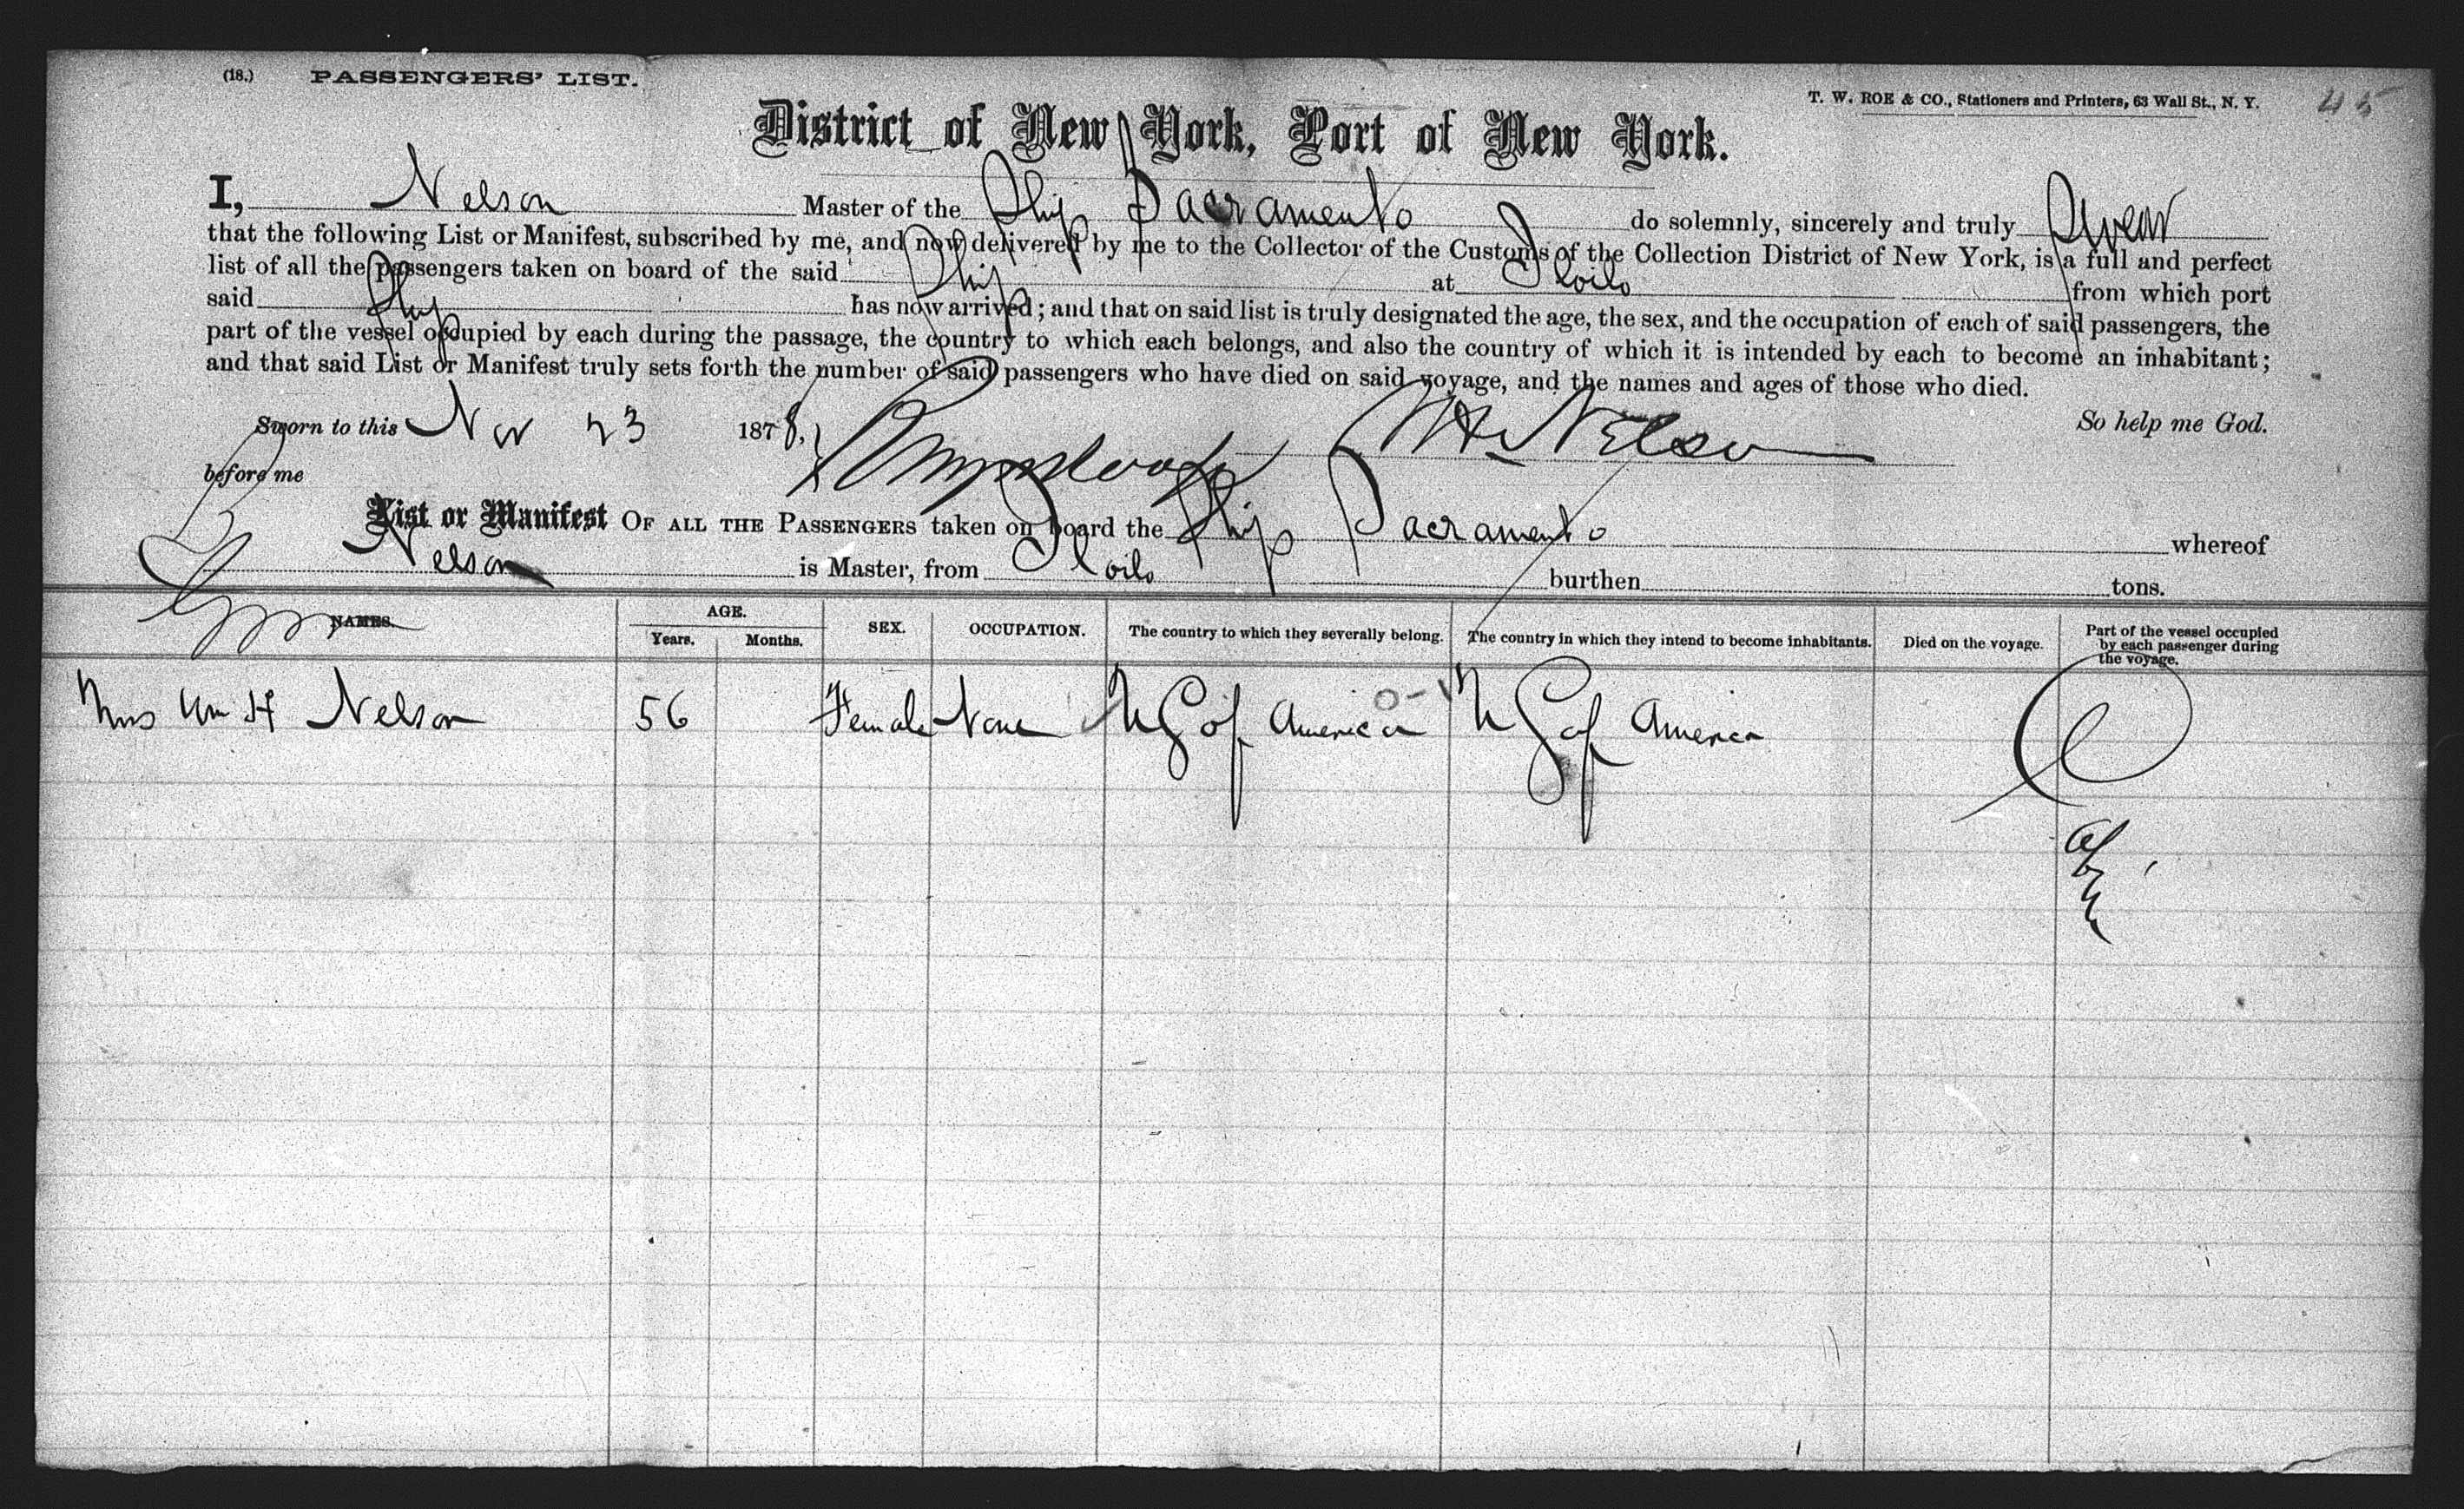 (18.) PASSENGERS' LIST.
T. W. ROE & CO., Stationers and Printers, 63 Wall St., N. Y. 45
District of New York, Port of New York.
I, Nelson Master of the Ship Sacramento do solemnly, sincerely and truly Swear
that the following List or Manifest, subscribed by me, and now delivered by me to the Collector of the Customs of the Collection District of New York, is a full and perfect
list of all the passengers taken on board of the said Ship at Iloilo from which port
said Ship has now arrived; and that on said list is truly designated the age, the sex, and the occupation of each of said passengers, the
part of the vessel occupied by each during the passage, the country to which each belongs, and also the country of which it is intended by each to become an inhabitant;
and that said List or Manifest truly sets forth the number of said passengers who have died on said voyage, and the names and ages of those who died.
Sworn to this Nov 23 1878, W H Nelson So help me God.
before me
List or Manifest OF ALL THE PASSENGERS taken on board the Ship Sacramento whereof
Nelson is Master, from Iloilo burthen tons.
NAMES. AGE. Years. Months. SEX. OCCUPATION. The country to which they severally belong. The country in which they intend to become inhabitants. Died on the voyage. Part of the vessel occupied by each passenger during the voyage.
Mrs Wm H Nelson 56 Female None U S of America U S of America